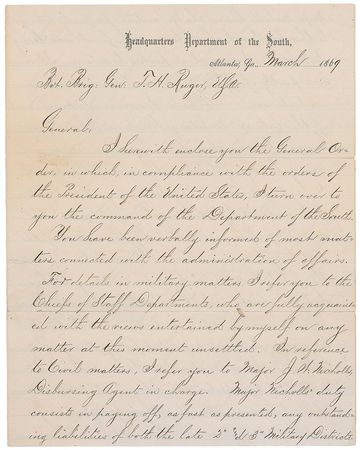 Headquarters Department of the South,
Atlanta, Ga., March 1869
Bvt. Brig: Gen: T. H. Ruger, U.S.A.
General,
I herewith enclose you the General Or-
der, in which, in compliance with the orders of
the President of the United States, I turn over to
you the command of the Department of the South.
You have been verbally informed of most mat-
ters connected with the administration of affairs.
For details in military matters I refer you to the
Chiefs of Staff Departments, who are fully acquaint-
ed with the views entertained by myself on any
matter at this moment unsettled. In reference
to Civil matters, I refer you to Major J. W. Nicholls
Disbursing Agent in charge. Major Nicholls' duty
consists in paying off, as fast as presented, any outstand-
ing liabilities of both the late 2" & 3" Military Districts